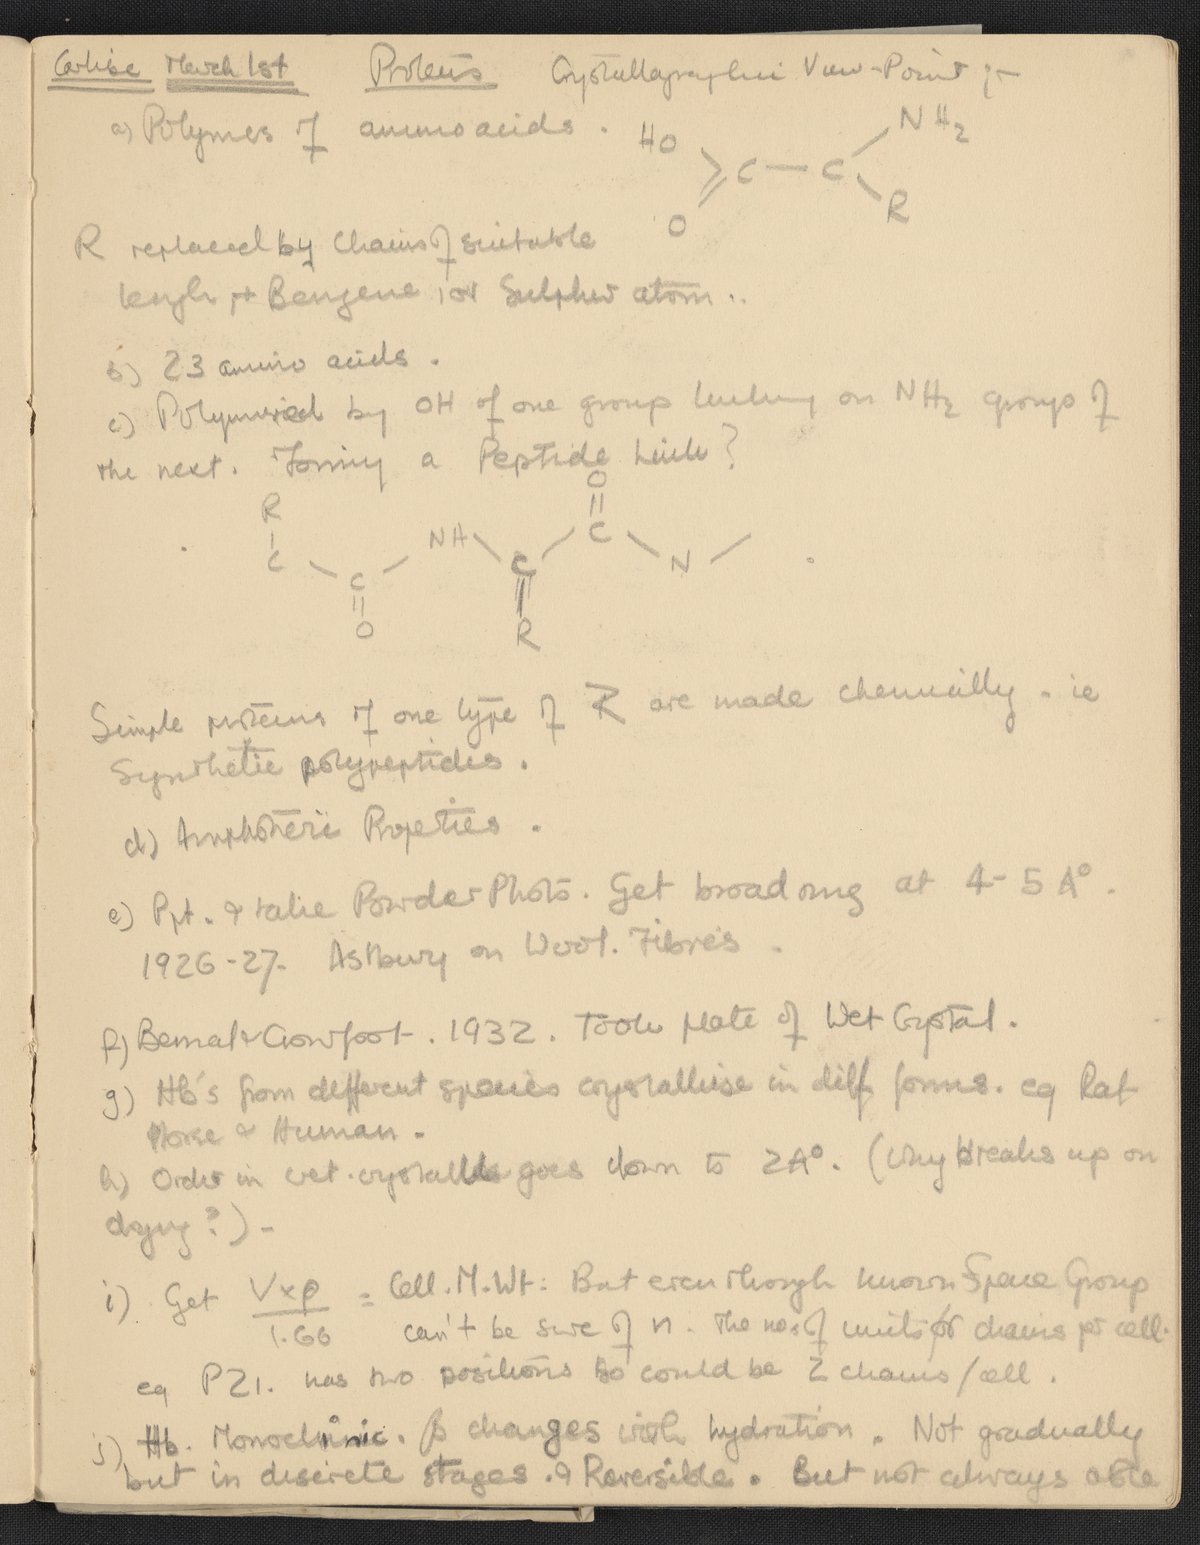 Carlisle March 1st Proteins Crystallographic View-Point :-
a) Polymers of amino acids.
HO NH2
C — C
O R
R replaced by chains of suitable
length, + Benzene, or Sulphur atom..
b) 23 amino acids.
c) Polymerized by OH of one group linking on NH2 group of
the next. Forming a Peptide Link?
O
R || 
C NH C
C C N
|| ||
O R
Simple proteins of one type of R are made chemically. ie
Synthetic polypeptides.
d) Amphoteric Properties.
e) Ppt. & take Powder Photo. Get broad ring at 4-5 A°.
1926-27. Astbury on Wool. Fibres.
f) Bernal & Crowfoot. 1932. Took plate of Wet Crystal.
g) Hb's from different species crystallise in diff forms. eg Rat
Horse & Human.
h) Order in wet. crystals goes down to 2A°. (why breaks up on
drying?) -
i) Get V×ρ/1.66 = Cell. M.Wt: But even though known Space Group
can't be sure of n. The no. of units or chains per cell.
eg P21. has two positions so could be 2 chains/cell.
j) Hb. Monoclinic. β changes with hydration. Not gradually
but in discrete stages. & Reversible. But not always able